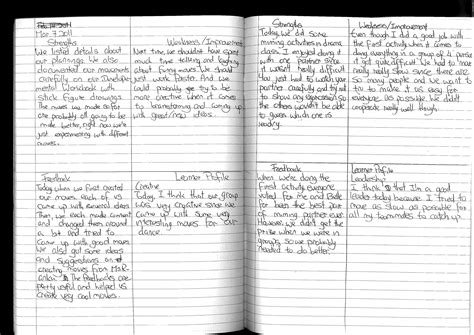 Mar 7 2011
Strengths
We listed details about
our planning. We also
documented our movements
carefully on our Developmental
Workbook with
Stick Figure drawings.
The moves we made so far
are probably going to be
made better, right now we're
just experimenting with different
moves.
Weakness/Improvement
Next time, we shouldn't have spent
much time talking and laughing
about funny moves. We should
have work faster. And we
could probably get try to be
more creative when it comes
to brainstorming and coming up
with great new ideas.
Feedback
Today when we first created
our moves each of us
came up with general ideas
Then, we each made comment
and changed them around
a lot and tried to
come up with good moves
We also got some ideas
and suggestions on
creating moves from Ms.R
The Feedbacks are
probably great and helped us
create very cool moves.
Learner Profile
Creative
Today, I think that our group
was very creative since we
came up with some very
interesting moves for our
dance.
Strengths
Today, We did some
miming activities in drama
class. I enjoyed doing it
with one partner since
it wasn't really difficult
You just had to watch your
partner carefully and try not
to show any expression so
the others wouldn't be able
to guess which one is
leading.
Weakness/Improvement
Even though I did a good job with
the first activity when it comes to
doing everything in a group of 4 person
it got quite difficult. We had to move
really really slow since there are
so many people and we want to
try to make it as easy for
everyone as possible. We didn't
cooperate really well though.
Feedback
When we're doing the
first activity everyone
voted for me and
for been the best pair
of miming partner ever.
However, we didn't get
the price when we were in
groups, so we probably
needed to do better.
Learner Profile
Leadership
I think that I'm a good
leader today because I tried to
move as slow as possible for
all my teammates to catch up.